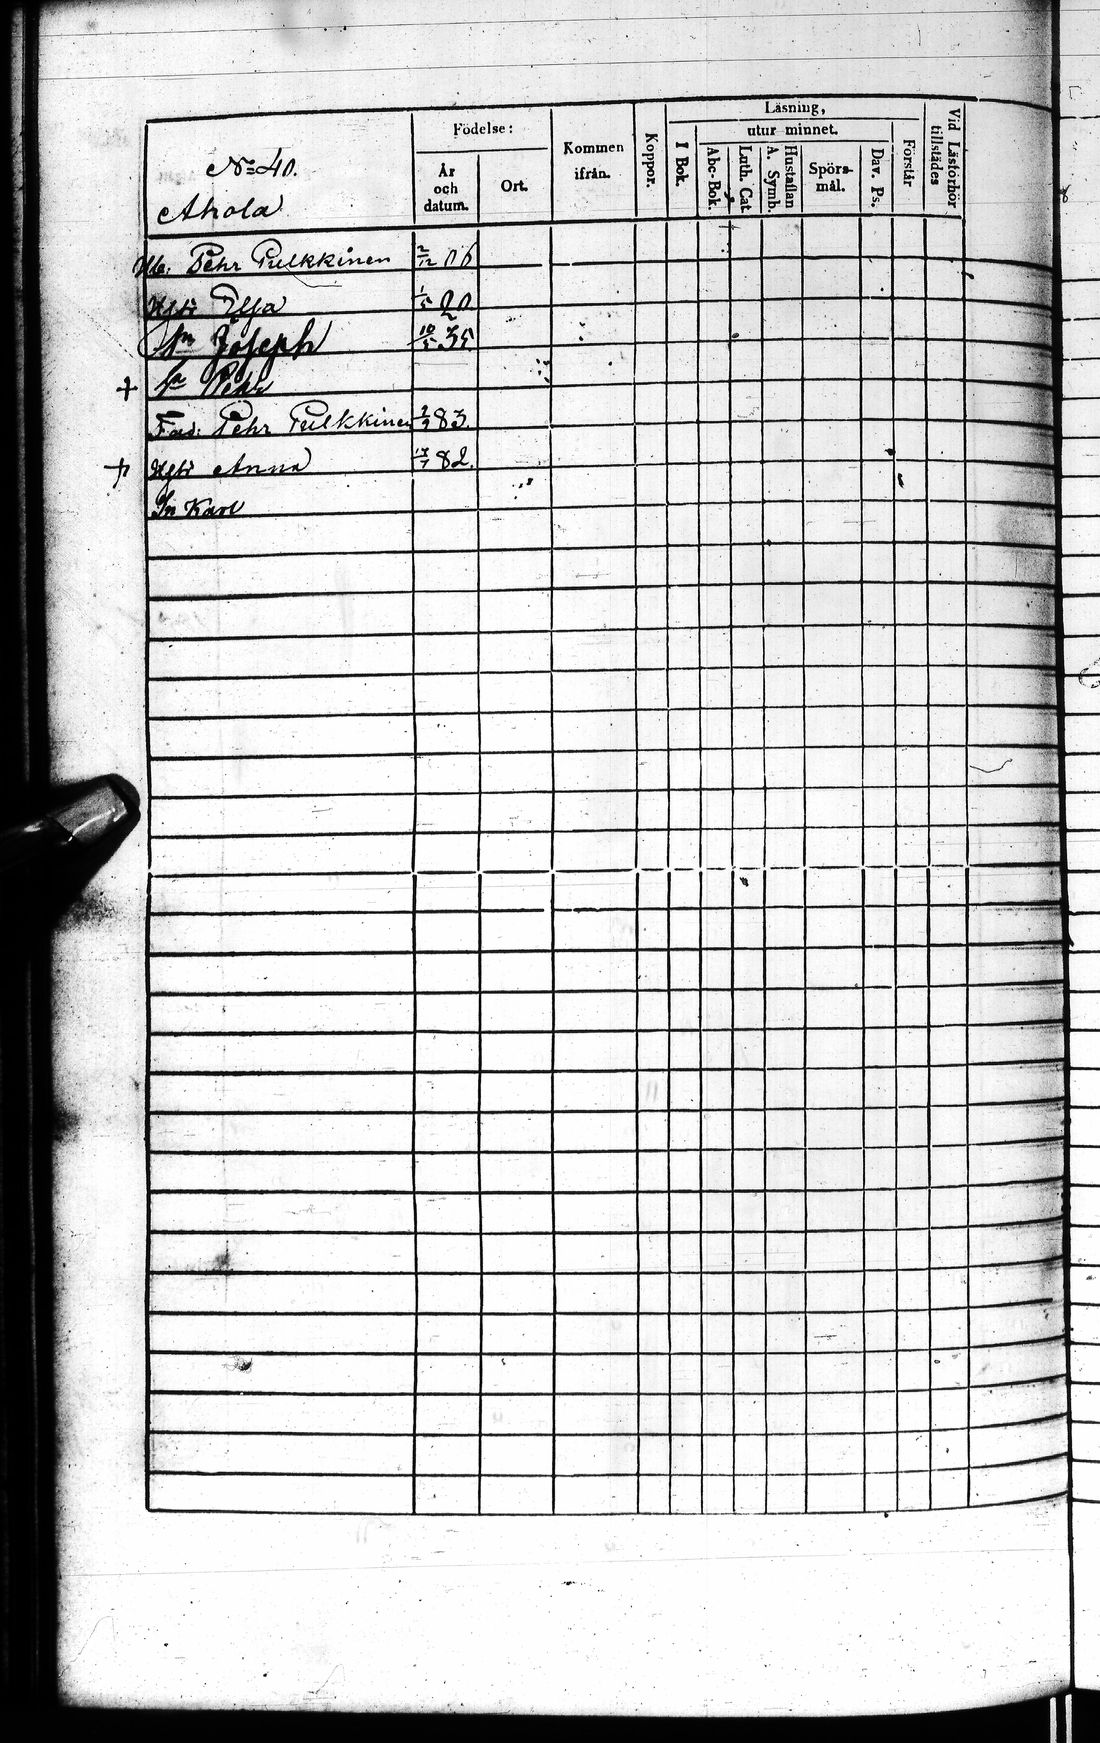 No 40.
Ahola
Födelse:
År och datum.
Ort.
Kommen ifrån.
Koppor.
Läsning,
I Bok.
utur minnet.
Abc-Bok.
Luth. Cat.
Hustaflan A. Symb.
Spörs-mål.
Dav. Ps.
Förstår
Vid Läsförhör tillstädes
Pehr Pulkkinen 2/12 06
Hstr Elsa 1/5 20
Sn Joseph 10/5 35
+ Sn Pehr
Fad: Pehr Pulkkinen 2/9 83.
+ Hstr Anna 82.
Sn Karl